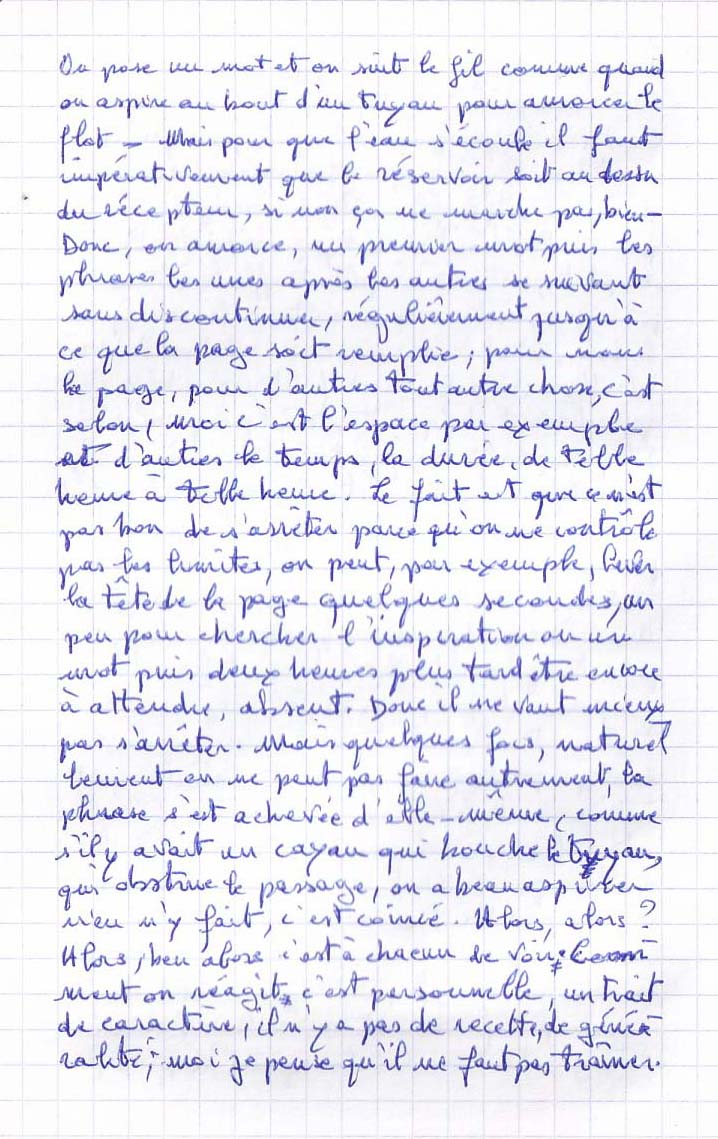 On pose un mot et on suit le fil comme quand
on aspire au bout d'un tuyau pour amorcer le
flot – Mais pour que l'eau s'écoule il faut
impérativement que le réservoir soit au dessu
du récepteur, si non ça ne marche pas, bien –
Donc, on amorce, un premier mot puis les
phrases les unes après les autres se suivant
sans discontinuer, régulièrement jusqu'à
ce que la page soit remplie ; pour nous
la page, pour d'autres tout autre chose, c'est
selon, moi c'est l'espace par exemple
et d'autres le temps, la durée, de telle
heure à telle heure. Le fait est que ce n'est
pas bon de s'arrêter parce qu'on ne contrôle
pas les limites, on peut, par exemple, lever
la tête de la page quelques secondes, un
peu pour chercher l'inspiration ou un
mot puis deux heures plus tard être encore
à attendre, absent. Donc il ne vaut mieux
pas s'arrêter. Mais quelques fois, naturel
lement on ne peut pas faire autrement, la
phrase s'est achevée d'elle-même, comme
s'il y avait un cayau qui bouche le tuyau,
qui obstrue le passage, on a beau aspirer
rien n'y fait, c'est coincé. Alors, alors ?
Alors, ben alors c'est à chacun de voir, com
ment on réagit, c'est personnelle, un trait
de caractère, il n'y a pas de recette, de géné
ralité ; moi je pense qu'il ne faut pas traîner.